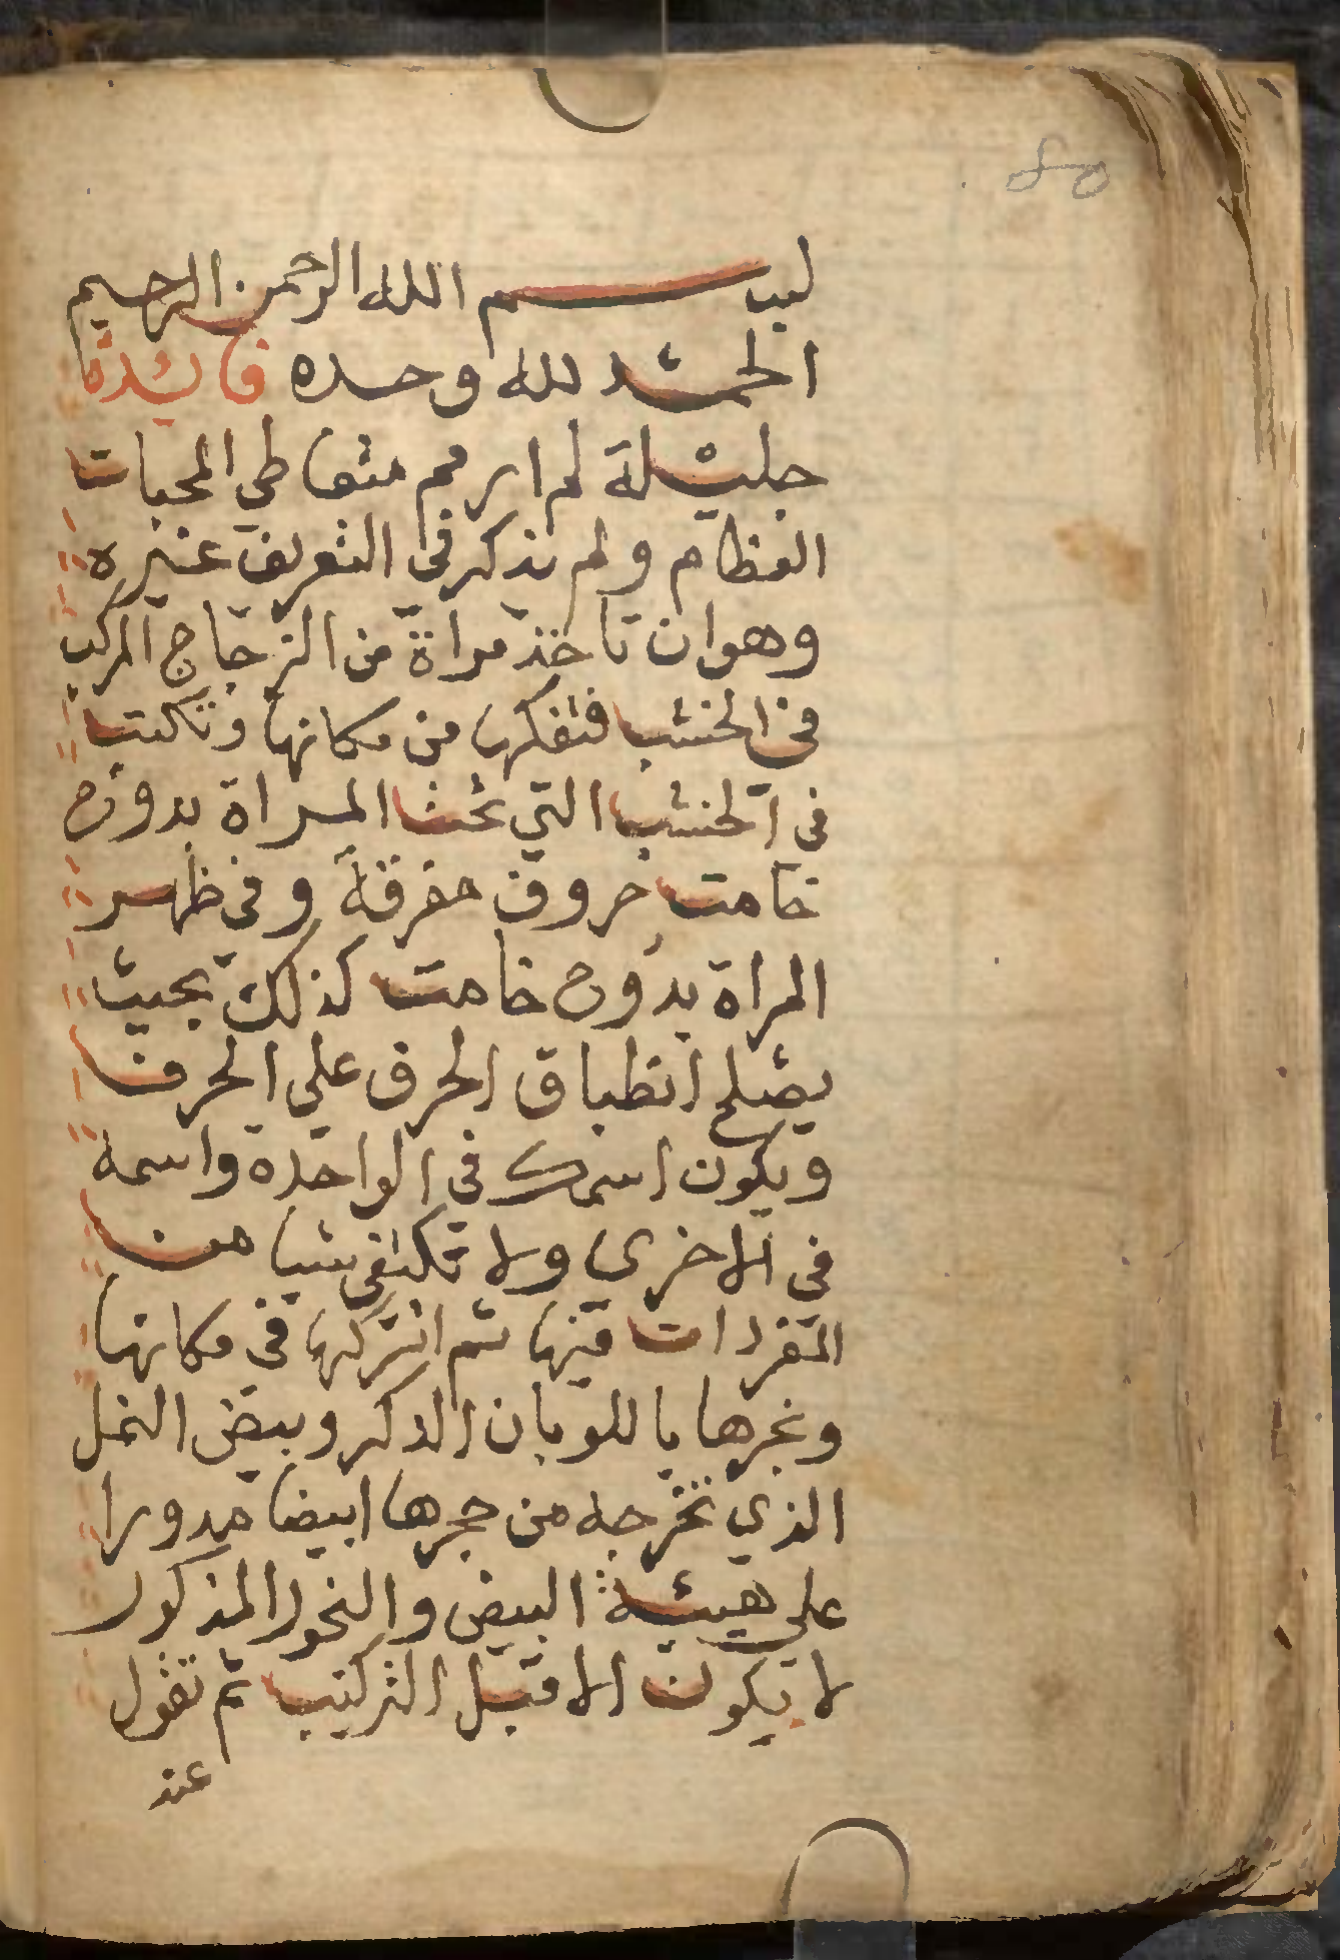 بسم الله الرحمن الرحيم
الحمد لله وحده فائدة
جليلة لم ار مم متعاطي المحبات
العظام ولم يذكر في التعريف غيره
وهو ان تاخذ مراة من الزجاج المركب
في الخشب فتفكها من مكانها وتكتب
في الخشب التي تحت المراة بدوح
خامت حروف مفرقة وفي ظهر
المراة بدوح خامت كذلك بحيث
يصلح انطباق الحرف علي الحرف
ويكون اسمك في الواحدة واسمه
في الاخري ولا تكتفي شيا من
المفردات فيها ثم اتركها في مكانها
وبخرها باللوبان الذكر وبيض النمل
الذي تخرجه من حجرها ابيضا مدورا
علي هيئة البيض والبخور المذكور
لا يكون الا قبل التركيب ثم تقول
عند